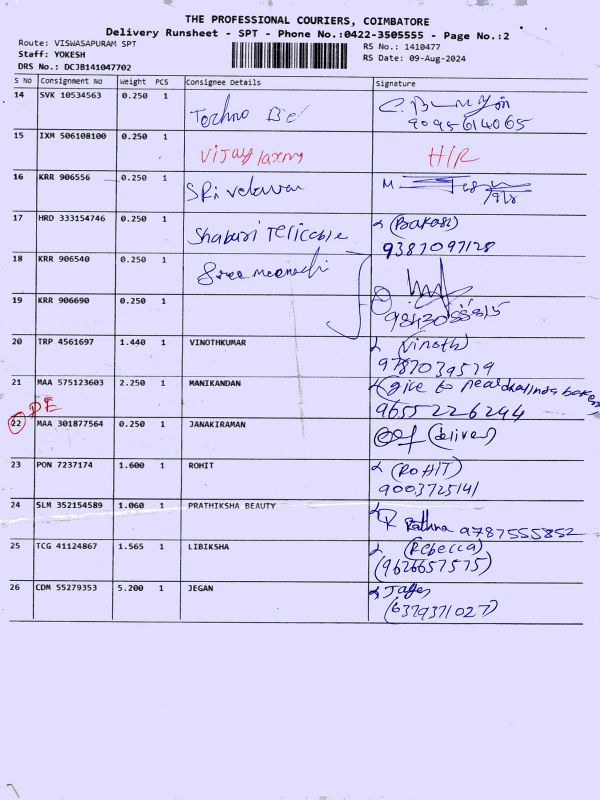 THE PROFESSIONAL COURIERS, COIMBATORE
Delivery Runsheet - SPT - Phone No.:0422-3505555 - Page No.:2
Route: VISWASAPURAM SPT
Staff: YOKESH
DRS No.: DCJB141047702
RS No.: 1410477
RS Date: 09-Aug-2024
S No Consignment No Weight PCS Consignee Details Signature
14 SVK 10534563 0.250 1 Techno
9095614065
15 IXM 506108100 0.250 1 Vijay laxmy H/R
16 KRR 906556 0.250 1 SRi velavan M
17 HRD 333154746 0.250 1 Shaburi Telicable
9387097128
18 KRR 906540 0.250 1 Sree meenachi
19 KRR 906690 0.250 1
9843055815
20 TRP 4561697 1.440 1 VINOTHKUMAR (Vinoth)
9787039579
21 MAA 575123603 2.250 1 MANIKANDAN (give to near
9655226244
DE
22 MAA 301877564 0.250 1 JANAKIRAMAN
23 PON 7237174 1.600 1 ROHIT (ROHIT)
9003725141
24 SLM 352154589 1.060 1 PRATHIKSHA BEAUTY
R Rathna 9787555852
25 TCG 41124867 1.565 1 LIBIKSHA (Rebecca)
(9626657575)
26 CDM 55279353 5.200 1 JEGAN
(6379371027)